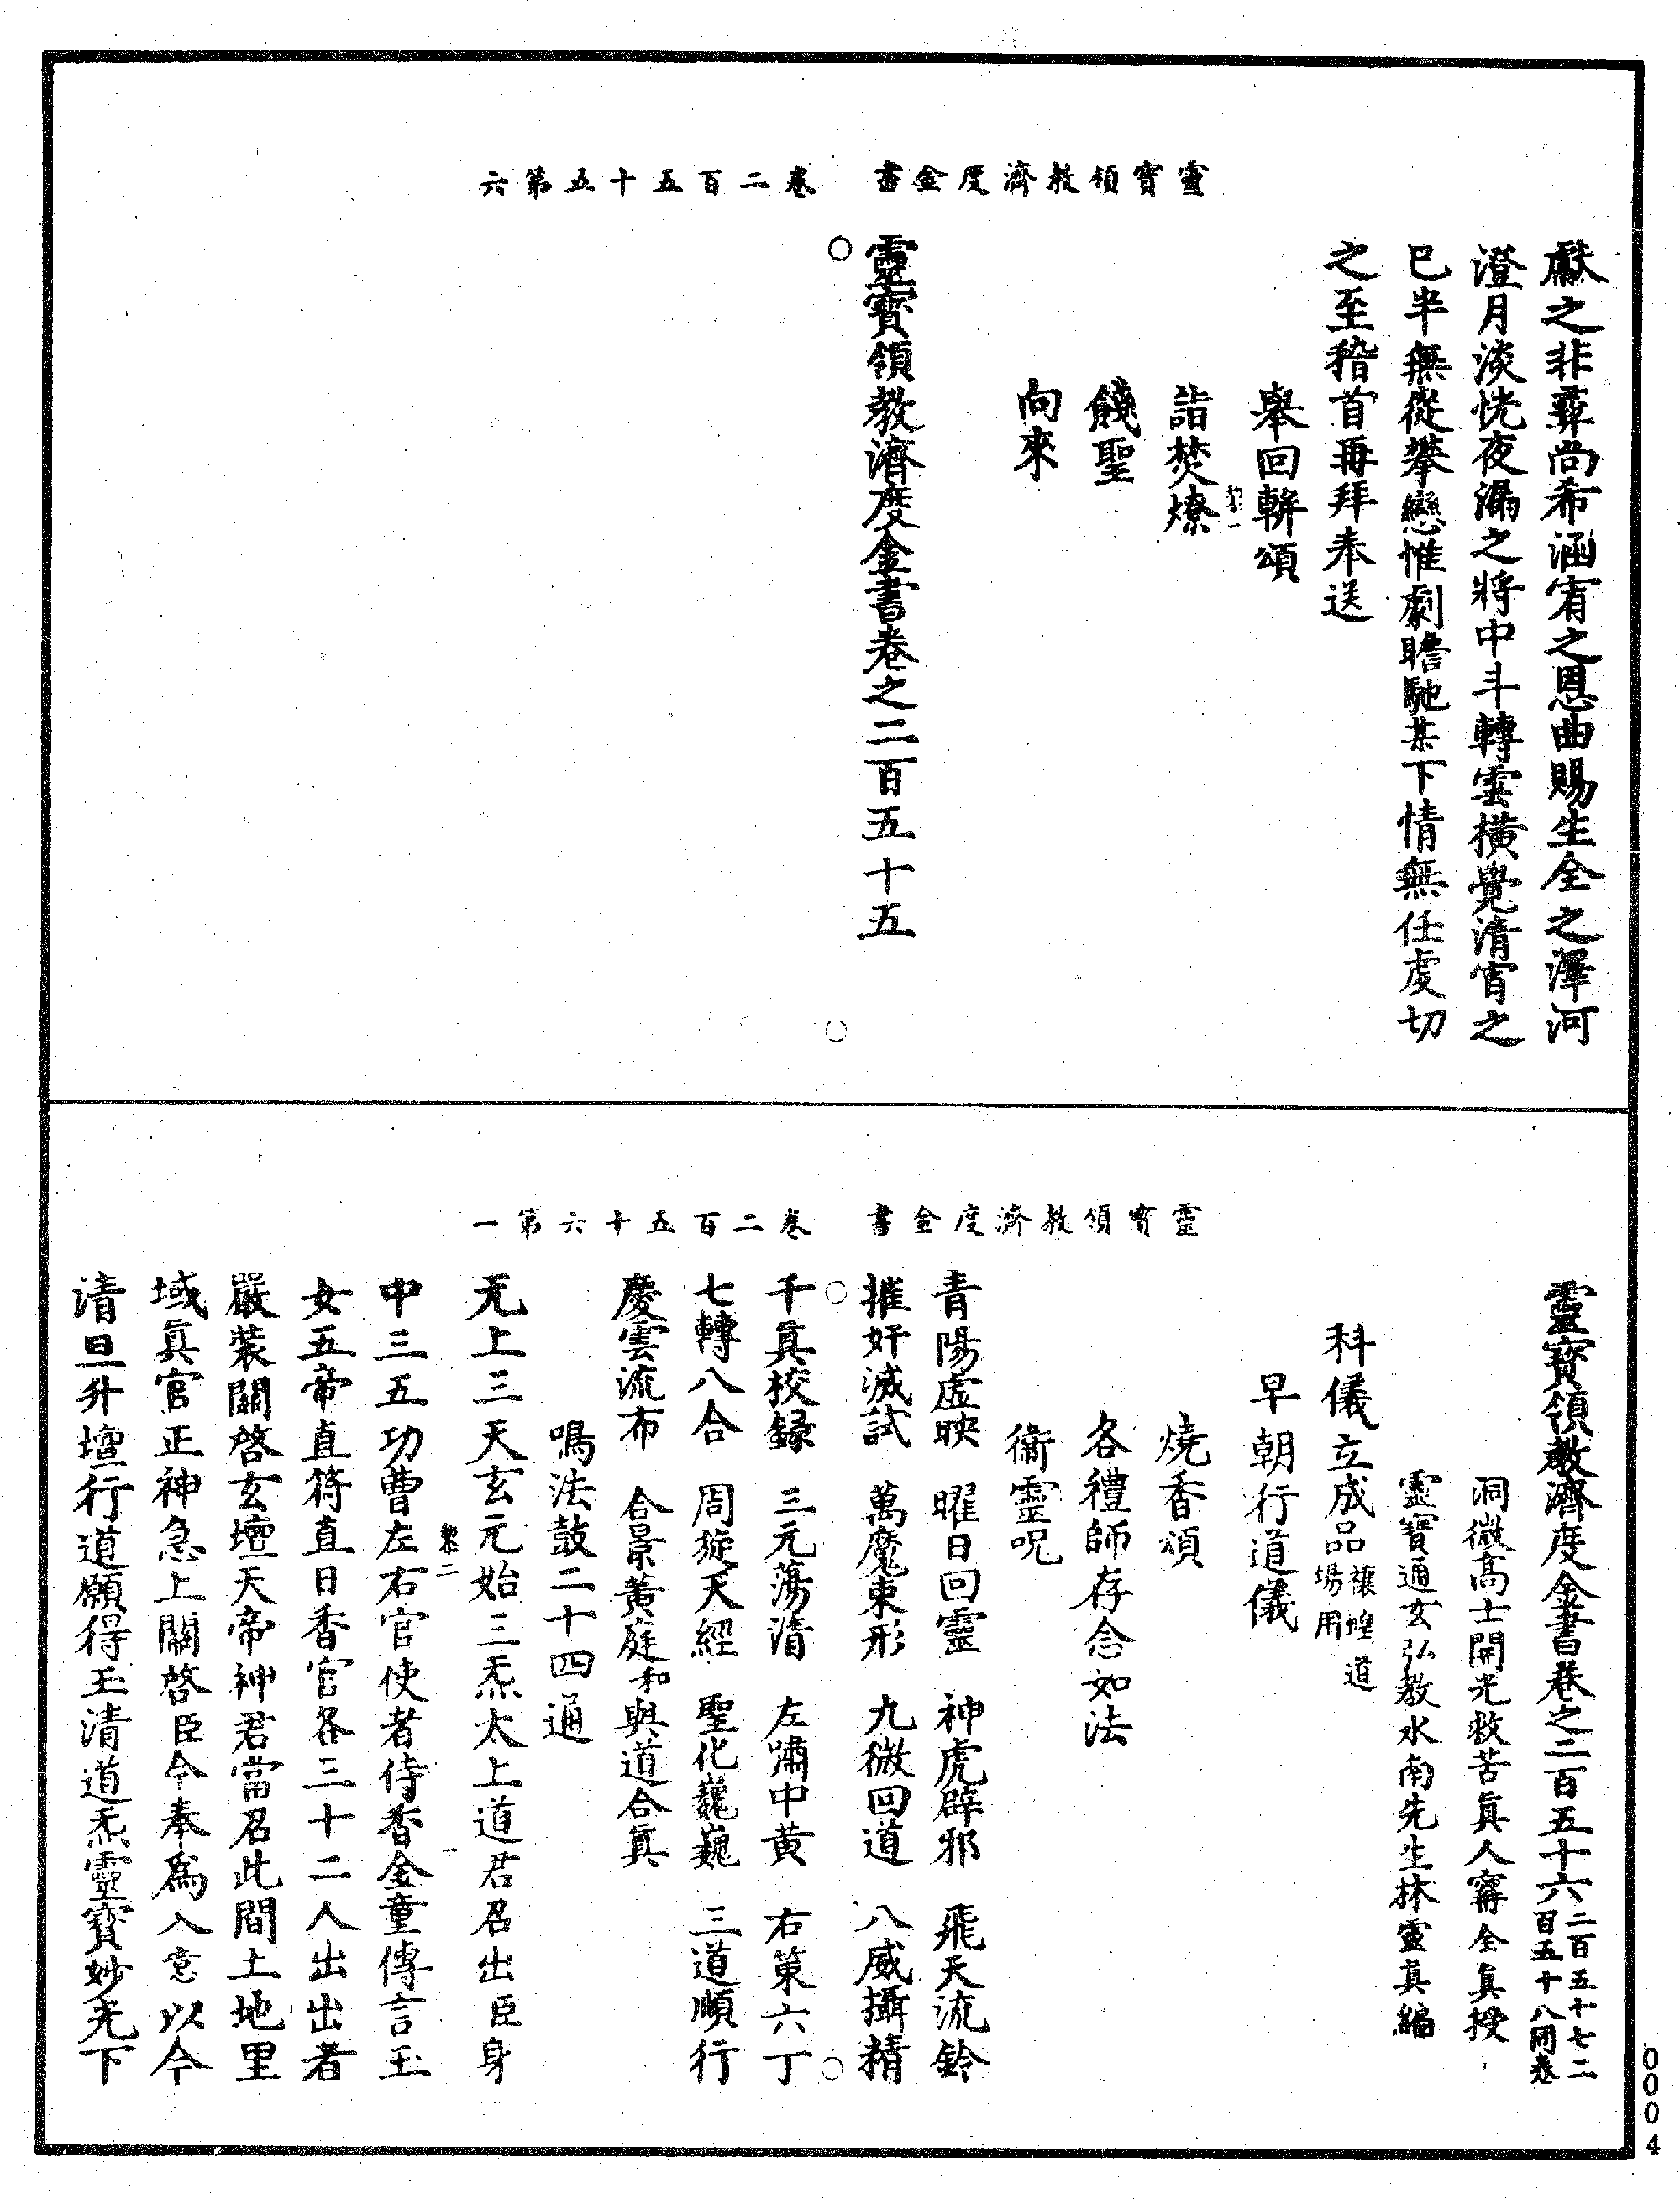 靈寶領教濟度金書　卷二百五十五第六
獻之非彝尚希涵宥之恩曲賜生全之澤河
澄月淡恍夜漏之將中斗轉雲橫覺清宵之
巳半無從攀戀惟劇瞻馳某下情無任虔切
之至稽首再拜奉送
舉回軿頌
詣焚燎
餞聖
向來
靈寶領教濟度金書卷之二百五十五
靈寶領教濟度金書　卷二百五十六第一
靈寶領教濟度金書卷之二百五十六二百五十七二百五十八同卷
洞微高士開光救苦眞人甯全眞授
靈寶通玄弘教水南先生林靈眞編
科儀立成品禳蝗道場用
早朝行道儀
燒香頌
各禮師存念如法
衞靈呪
青陽虛映　曜日回靈　神虎辟邪　飛天流鈴
摧奸滅試　萬魔束形　九微回道　八威攝精
千眞校錄　三元蕩清　左嘯中黃　右策六丁
七轉八合　周旋天經　聖化巍巍　三道順行
慶雲流布　合景黃庭　和與道合眞
鳴法鼓二十四通
无上三天玄元始三炁太上道君召出臣身
中三五功曹左右官使者侍香金童傳言玉
女五帝直符直日香官各三十二人出出者
嚴裝關啓玄壇天帝神君當召此間土地里
域眞官正神急上關啓臣今奉爲入意以今
清旦升壇行道願得玉清道炁靈寶妙光下
0004